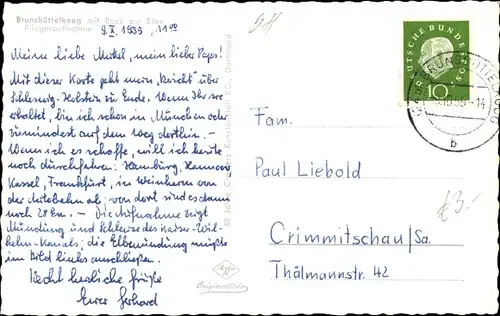 Brunsbüttelkoog mit Blick zur Elbe
Fliegeraufnahme
9.X.1959, 11⁰⁰
Meine liebe Muttel, mein lieber Paps!
Mit dieser Karte geht mein "Bericht" über
Schleswig-Holstein zu Ende. Wenn Ihr sie
erhaltet, bin ich schon in München oder
zumindest auf dem Weg dorthin. -
Wenn ich es schaffe, will ich heute
noch durchfahren: Hamburg, Hannover
Kassel, Frankfurt, in Weinheim von
der Autobahn ab, von dort sind es dann
noch 20 km. - Die Aufnahme zeigt
Mündung und Schleuse des Kaiser-Wil-
helm-Kanals; die Elbemündung müßte
im Bild links anschließen.
Recht herzliche Grüße
Euer Gerhard
Agfa
Originalfoto
DEUTSCHE BUNDESPOST
10
BRUNSBÜTTELKOOG
59-14
b
Fam.
Paul Liebold
£3.-
Crimmitschau/Sa.
Thälmannstr. 42